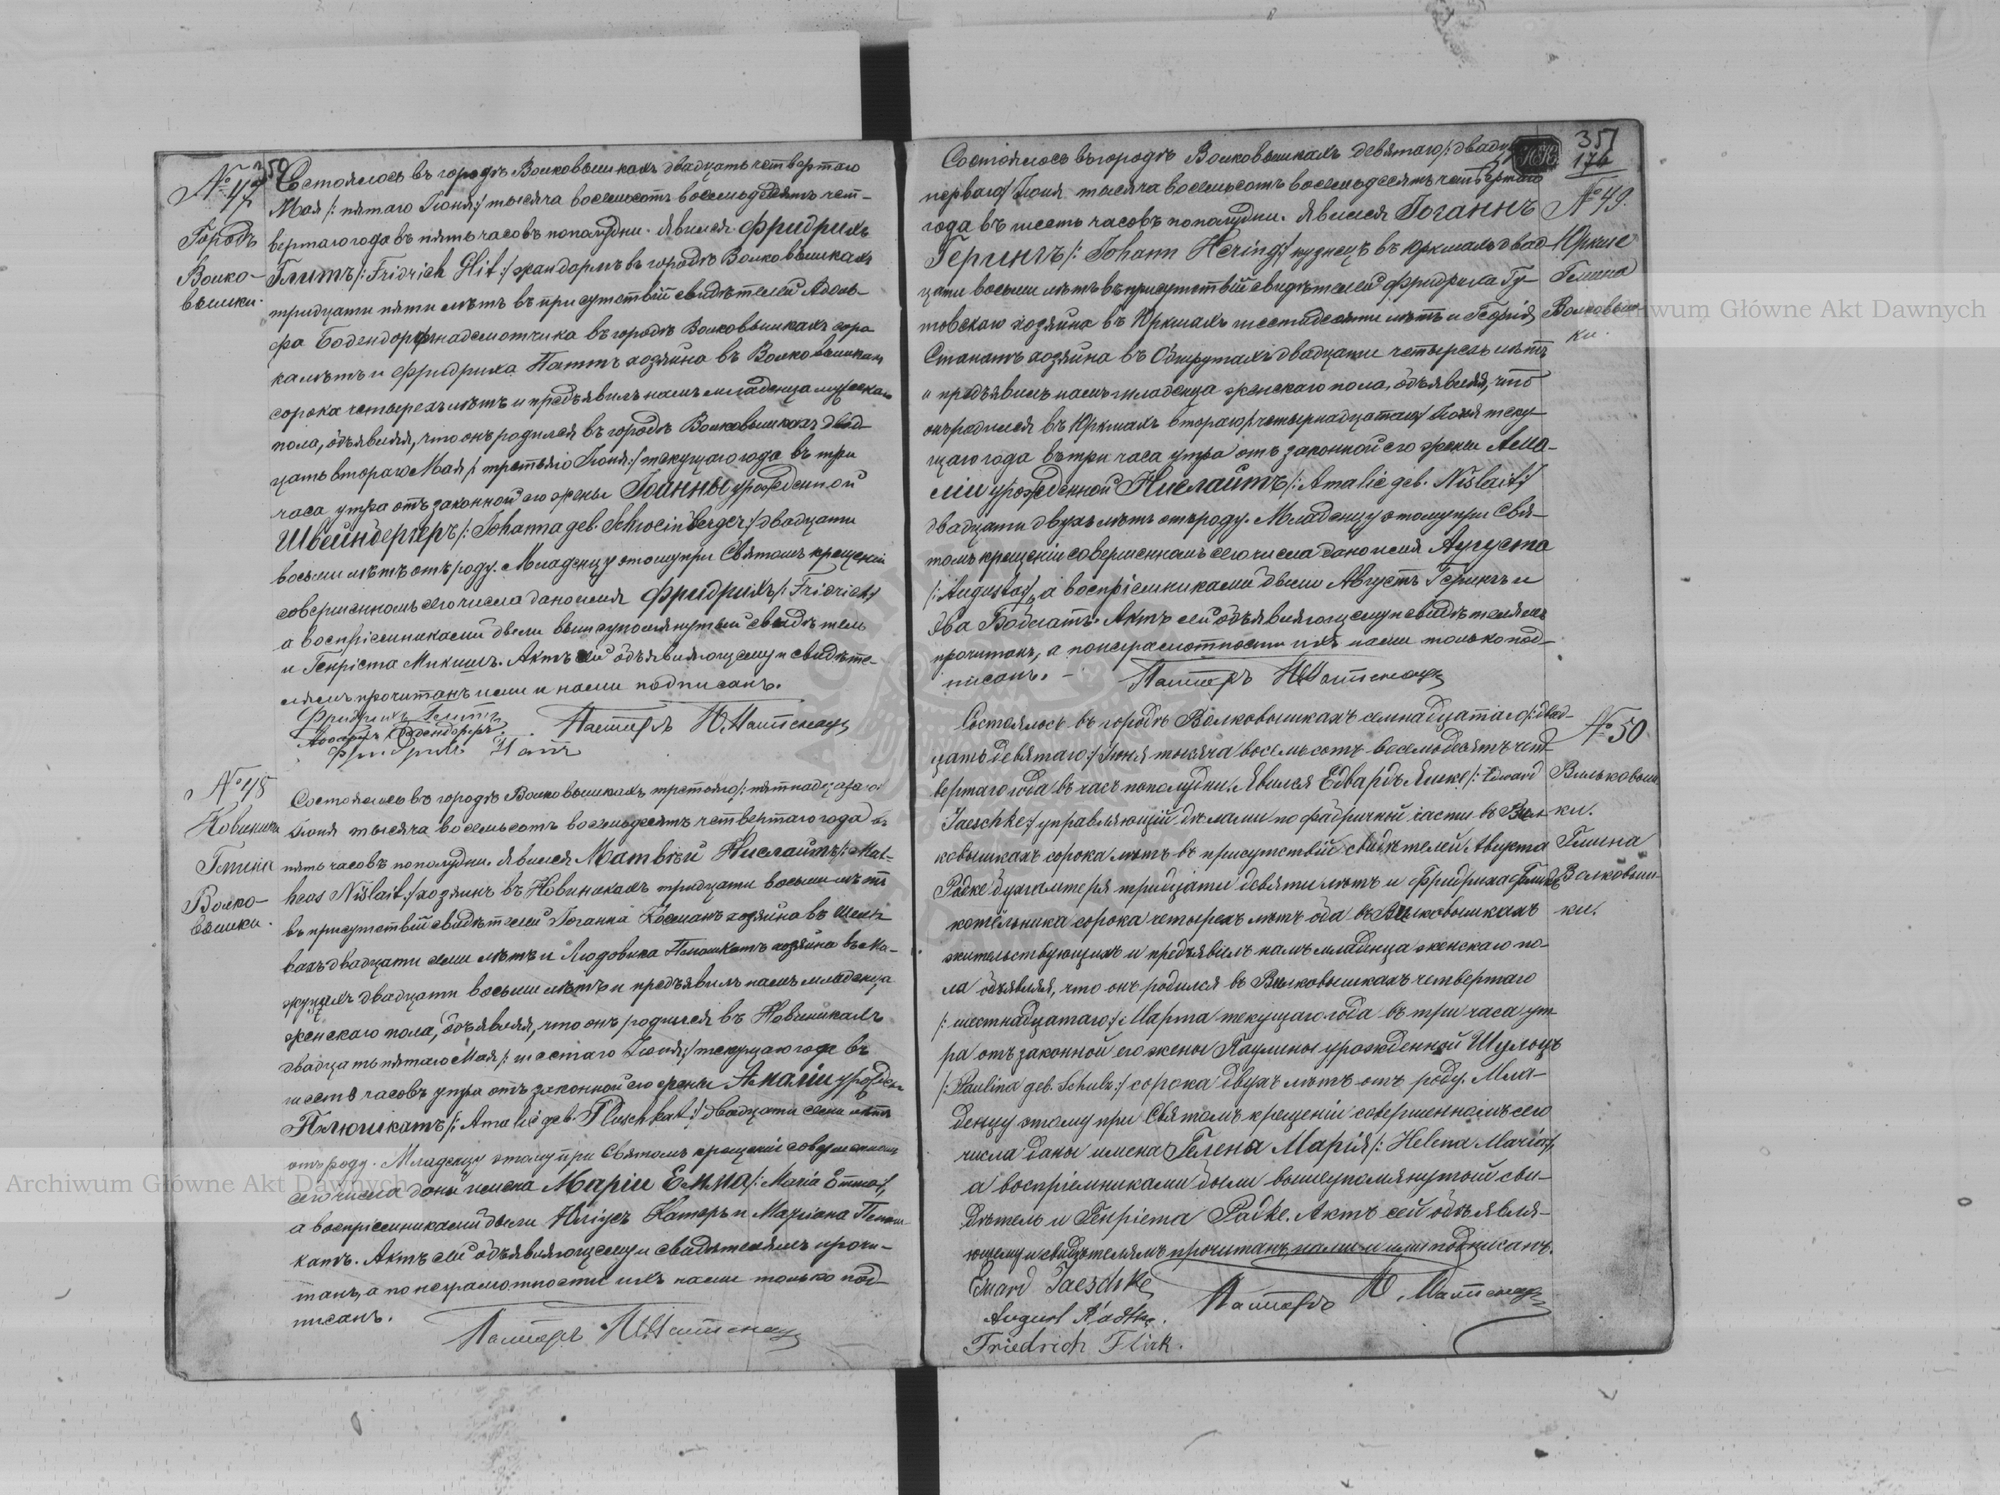 350
№ 47
Городъ
Волко-
вышки.
Состоялось въ городѣ Волковышкахъ двадцать четвертаго
Мая /: пятаго Іюня :/ тысяча восемьсотъ восемьдесятъ чет-
вертаго года въ пять часовъ пополудни. Явился Фридрихъ
Глитъ /: Fridrich Glit :/ жандармъ въ городѣ Волковышкахъ
тридцати пяти лѣтъ въ присутствіи свидѣтелей Адоль-
фа Бодендорфъ надсмотчика въ городѣ Волковышкахъ соро
ка лѣтъ и Фридриха Патъ хозяина въ Волковышкахъ
сорока четырехъ лѣтъ и предъявилъ намъ младенца мужескаго
пола, объявляя, что онъ родился въ городѣ Волковышкахъ двад-
цать втораго Мая /: третьяго Іюня :/ текущаго года въ три
часа утра отъ законной его жены Іоанны урожденной
Швейнбергеръ /: Johanna geb. Schweinberger :/ двадцати
восьми лѣтъ отъ роду. Младенцу этому при Святомъ крещеніи
совершенномъ сего числа дано имя Фридрихъ /: Fridrich :/
а воспріемниками были вышеупомянутый свидѣтель
и Генріета Микишъ. Актъ сей объявляющему и свидѣте-
лямъ прочитанъ ими и нами подписанъ.
Фридрихъ Глитъ
Адольфъ Бодендорфъ. Пасторъ
Фридрихъ Патъ
№ 48
Новиники
Гмина
Волко-
вышки.
Состоялось въ городѣ Волковышкахъ третьяго /: пятнадцатаго
Іюня тысяча восемьсотъ восемьдесятъ четвертаго года въ
пять часовъ пополудни. Явился Матвѣй Нислайтъ /: Mat-
heos Nislait :/ хозяинъ въ Новиникахъ тридцати восьми лѣтъ
въ присутствіи свидѣтелей Іоганна Косманъ хозяина въ
вахъ двадцати семи лѣтъ и Людовика Плюшкатъ хозяина въ Ма-
жуцяхъ двадцати восьми лѣтъ и предъявилъ намъ младенца
женскаго пола, объявляя, что онъ родился въ Новиникахъ
двадцать пятаго Мая /: шестаго Іюня :/ текущаго года въ
шесть часовъ утра отъ законной его жены Амаліи урожден
Плюшкатъ /: Amalie geb. Pluschkat :/ двадцати семи лѣтъ
отъ роду. Младенцу этому при Святомъ крещеніи совершенномъ
сего числа даны имена Марія Емма /: Maria Emma :/,
а воспріемниками были Юліусъ Катеръ и Маріана Плюш-
катъ. Актъ сей объявляющему и свидѣтелямъ прочи-
танъ, а по неграмотности ихъ нами только под-
писанъ.
Пасторъ
357
174
№ 49.
Юркше
Гмина
Волковыш-
ки.
Состоялось въ городѣ Волковышкахъ девятаго /: двадцать
перваго/ Іюня тысяча восемьсотъ восемьдесятъ четвертаго
года въ шесть часовъ пополудни. Явился Іоганнъ
Герингъ /: Johann Hering :/ кузнецъ въ Юркшахъ двад-
цати восьми лѣтъ въ присутствіи свидѣтелей Фридриха Гу-
товскаго хозяина въ Юркшахъ шестидесяти лѣтъ и Георгія
Станатъ хозяина въ Обшрутахъ двадцати четырехъ лѣтъ
и предъявилъ намъ младенца женскаго пола, объявляя, что
онъ родился въ Юркшахъ втораго /: четырнадцатаго/ Іюня теку-
щаго года въ три часа утра отъ законной его жены Ама-
ліи урожденной Нислайтъ /: Amalie geb. Nislait :/
двадцати двухъ лѣтъ отъ роду. Младенцу этому при Свя-
томъ крещеніи совершенномъ сего числа дано имя Августа
/: Augusta :/, а воспріемниками были Августъ Герингъ и
Ева Бодсатъ. Актъ сей объявляющему и свидѣтелямъ
прочитанъ, а по неграмотности ихъ нами только под-
писанъ. - Пасторъ
№ 50
Вильковыш
ки.
Гмина
Волковыш-
ки.
Состоялось въ городѣ Волковышкахъ семнадцатаго /: двад-
цать девятаго :/ Іюня тысяча восемьсотъ восемьдесятъ чет-
вертаго года въ часъ пополудни. Явился Едвардъ Яшке /: Edward
Jaeschke :/ управляющій дѣлами по фабричной части въ Вол-
ковышкахъ сорока лѣтъ въ присутствіи свидѣтелей Августа
Радке бухгалтера тридцати девяти лѣтъ и Фридриха Флик
котельника сорока четырехъ лѣтъ оба въ Волковышкахъ
жительствующихъ и предъявилъ намъ младенца женскаго по-
ла объявляя, что онъ родился въ Волковышкахъ четвертаго
/: шестнадцатаго :/ Марта текущаго года въ три часа ут-
ра отъ законной его жены Паулины урожденной Шульцъ
/: Paulina geb. Schulz :/ сорока двухъ лѣтъ отъ роду. Мла-
денцу этому при Святомъ крещеніи совершенномъ сего
числа даны имена Гелена Марія /: Helena Maria :/,
а воспріемниками были вышеупомянутый сви-
дѣтель и Генріета Радке. Актъ сей объявля-
ющему и свидѣтелямъ прочитанъ, нами и ими подписанъ.
Eduard Jaeschke
August Radtke. Пасторъ
Friedrich Flick.
Archiwum Główne Akt Dawnych
Archiwum Główne Akt Dawnych